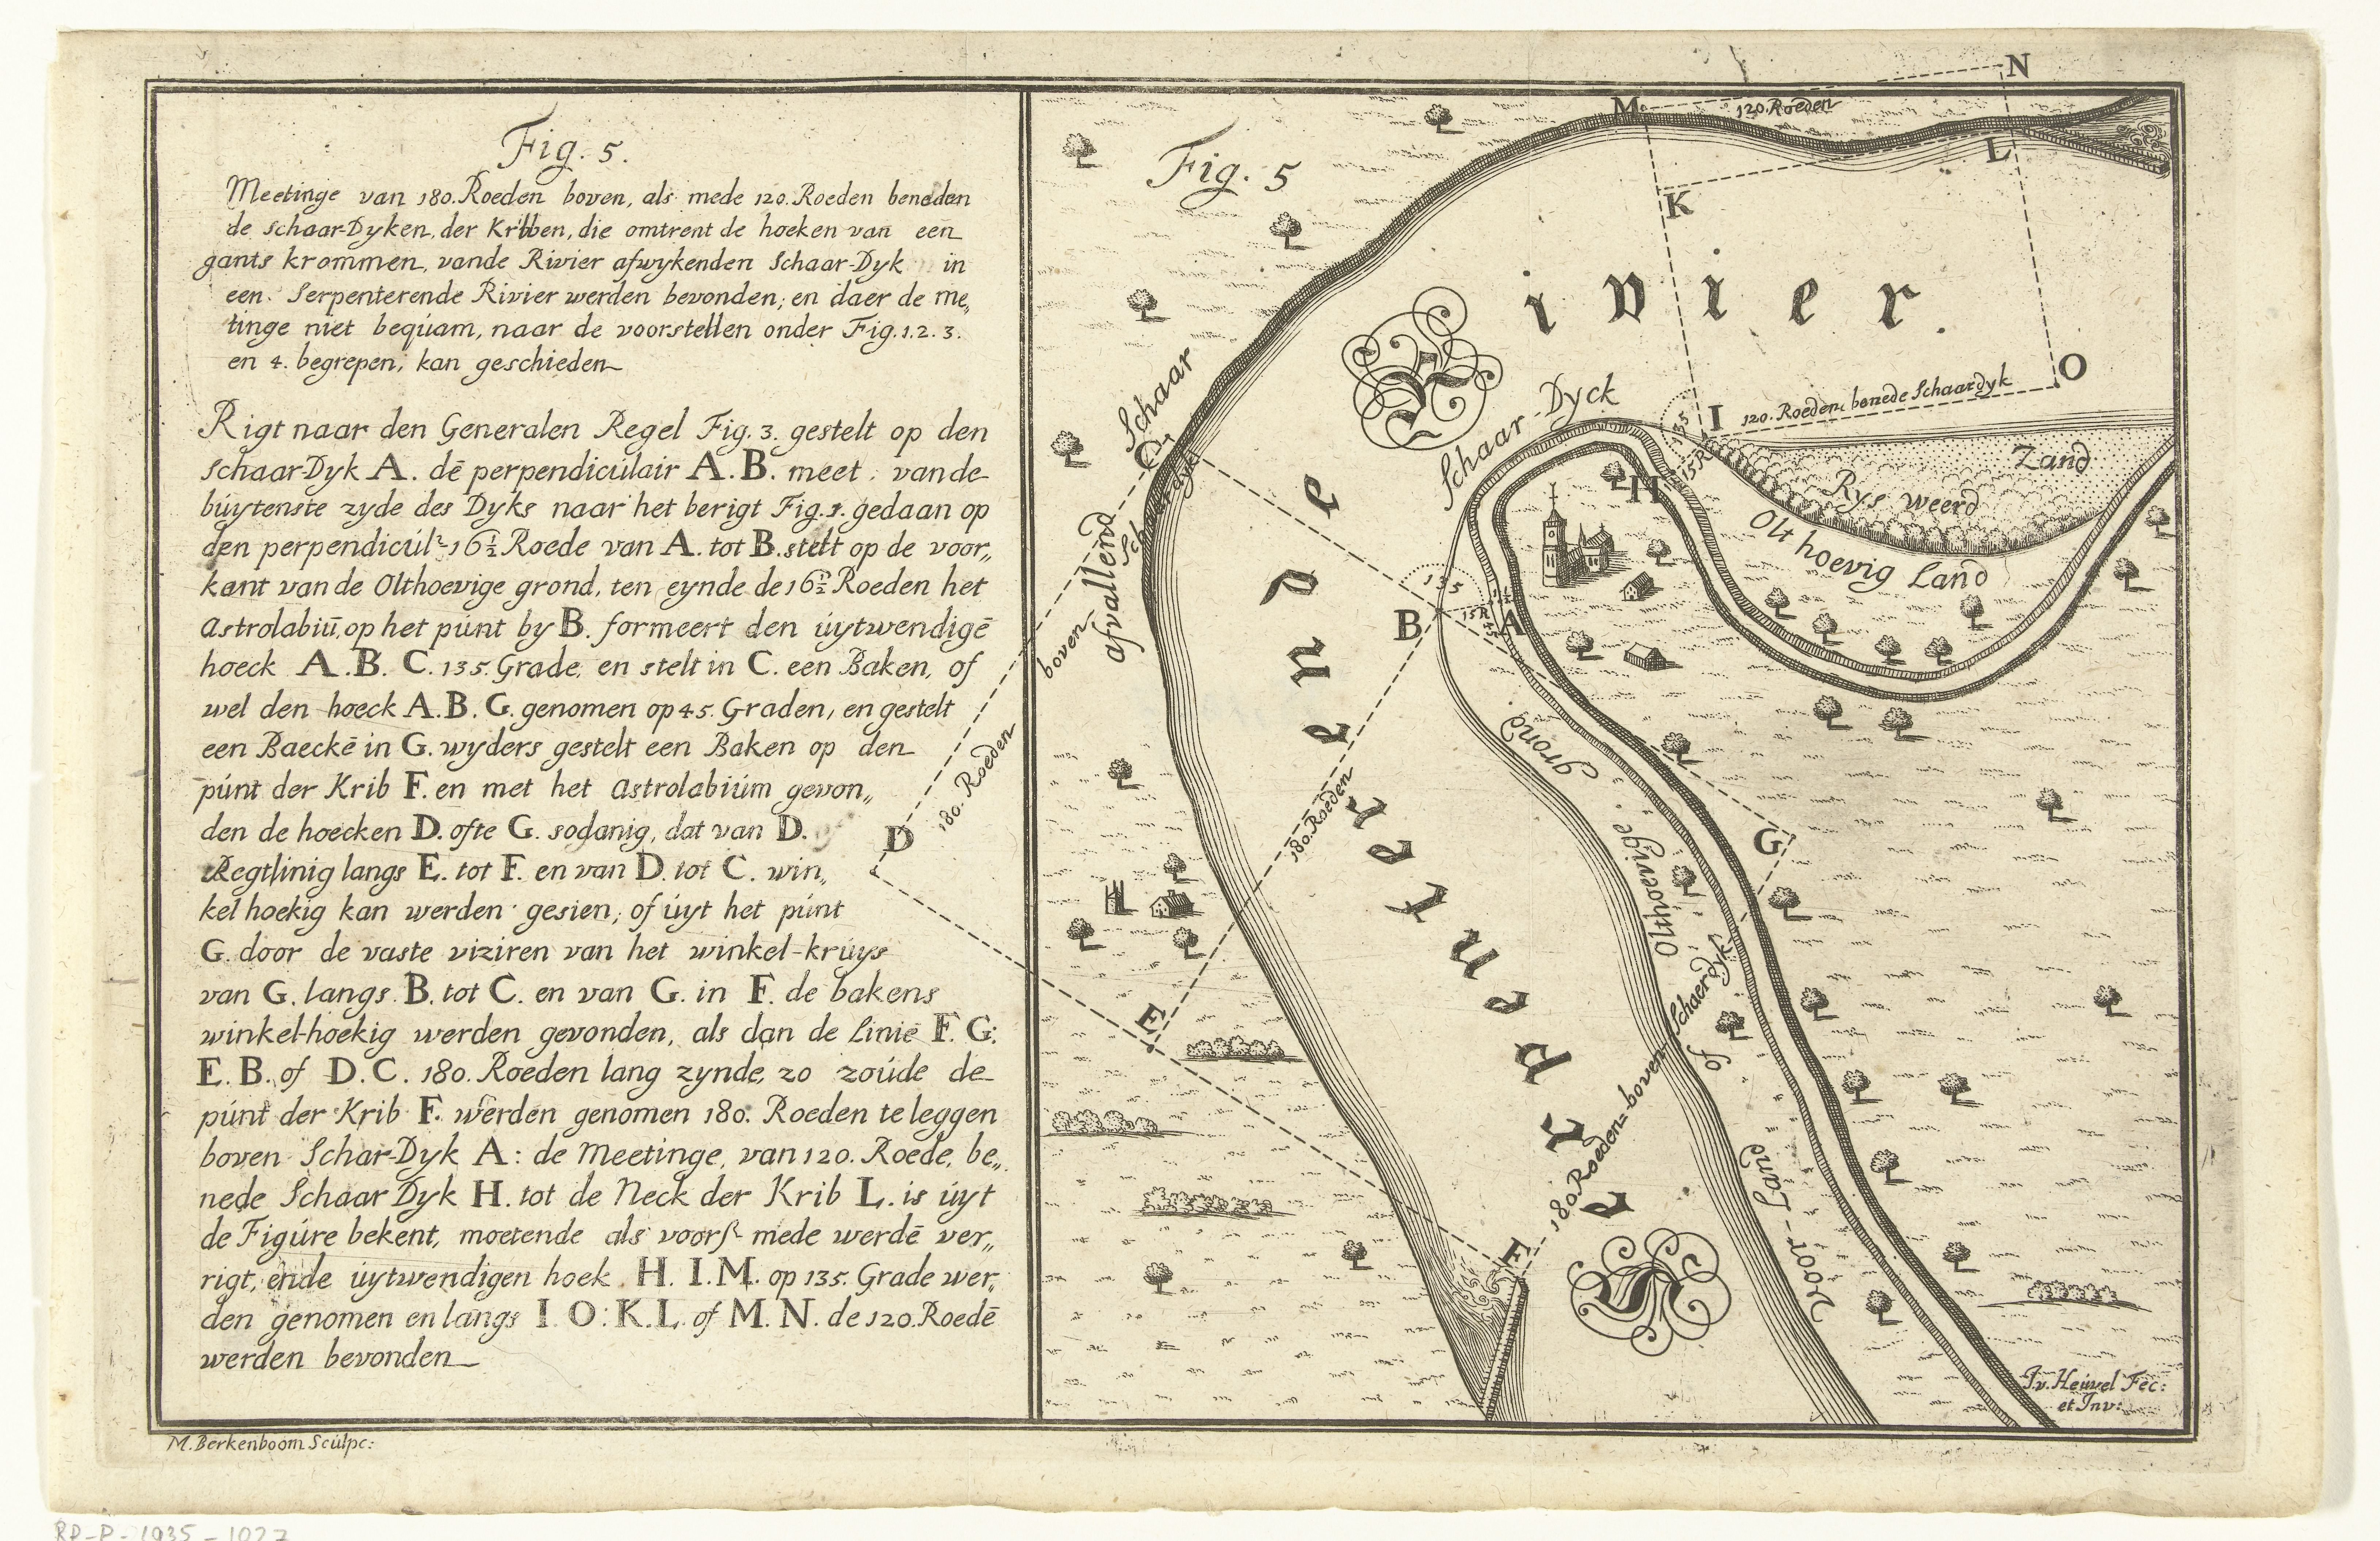 Fig. 5.
Meetinge van 180. Roeden boven, als mede 120. Roeden beneden
de schaar-Dyken, der Kribben, die omtrent de hoeken van een
gants krommen, vande Rivier afwykenden Schaar-Dyk in
een Serpenterende Rivier werden bevonden; en daer de me„
tinge niet bequam, naar de voorstellen onder Fig. 1. 2. 3.
en 4. begrepen, kan geschieden
Rigt naar den Generalen Regel Fig. 3. gestelt op den
schaar-Dyk A. dē perpendiculair A. B. meet vande
buytenste zyde des Dyks naar het berigt Fig. 1. gedaan op
den perpendiculr 16½ Roede van A. tot B. stelt op de voor„
kant van de Olthoevige grond, ten eynde de 16½ Roeden het
Astrolabiū, op het punt by B. formeert den uytwendigē
hoeck A. B. C. 135. Grade, en stelt in C. een Baken, of
wel den hoeck A. B. G. genomen op 45. Graden, en gestelt
een Baeckē in G. wyders gestelt een Baken op den
punt der Krib F. en met het Astrolabium gevon„
den de hoecken D. ofte G. sodanig, dat van D.
Regtlinig langs E. tot F. en van D. tot C. win„
kel hoekig kan werden gesien; of uyt het punt
G. door de vaste viziren van het winkel-kruys
van G. langs B. tot C. en van G. in F. de bakens
winkel-hoekig werden gevonden, als dan de Linie F. G:
E. B. of D. C. 180. Roeden lang zynde, zo zoude de
punt der Krib F. werden genomen 180. Roeden te leggen
boven Schar-Dyk A: de Meetinge, van 120. Roede, be„
nede Schaar Dyk H. tot de Neck der Krib L. is uyt
de Figure bekent, moetende als voorsz mede werdē ver„
rigt, ende uytwendigen hoek H. I. M. op 135. Grade wer„
den genomen en langs I O: K. L. of M. N. de 120. Roedē
werden bevonden
M. Berkenboom Sculpc:
Fig. 5
N
M
120. Roeden
L
K
Rivier.
O
I
120. Roeden benede Schaardyk
135
15 R
H
Schaar-Dyck
Zand
Rys weerd
Olt hoevig Land
Schaar
C
Schaardyk
afvallend
boven
180. Roeden
D
B
A
135
15 R
45
Serpenterende
180. Roeden
G
E
F
180. Roeden boven Schaerdyk
Olthoevige grond
of
Voor-Land
J. v. Heuvel Fec:
et Inv:
RP-P-1935-1027